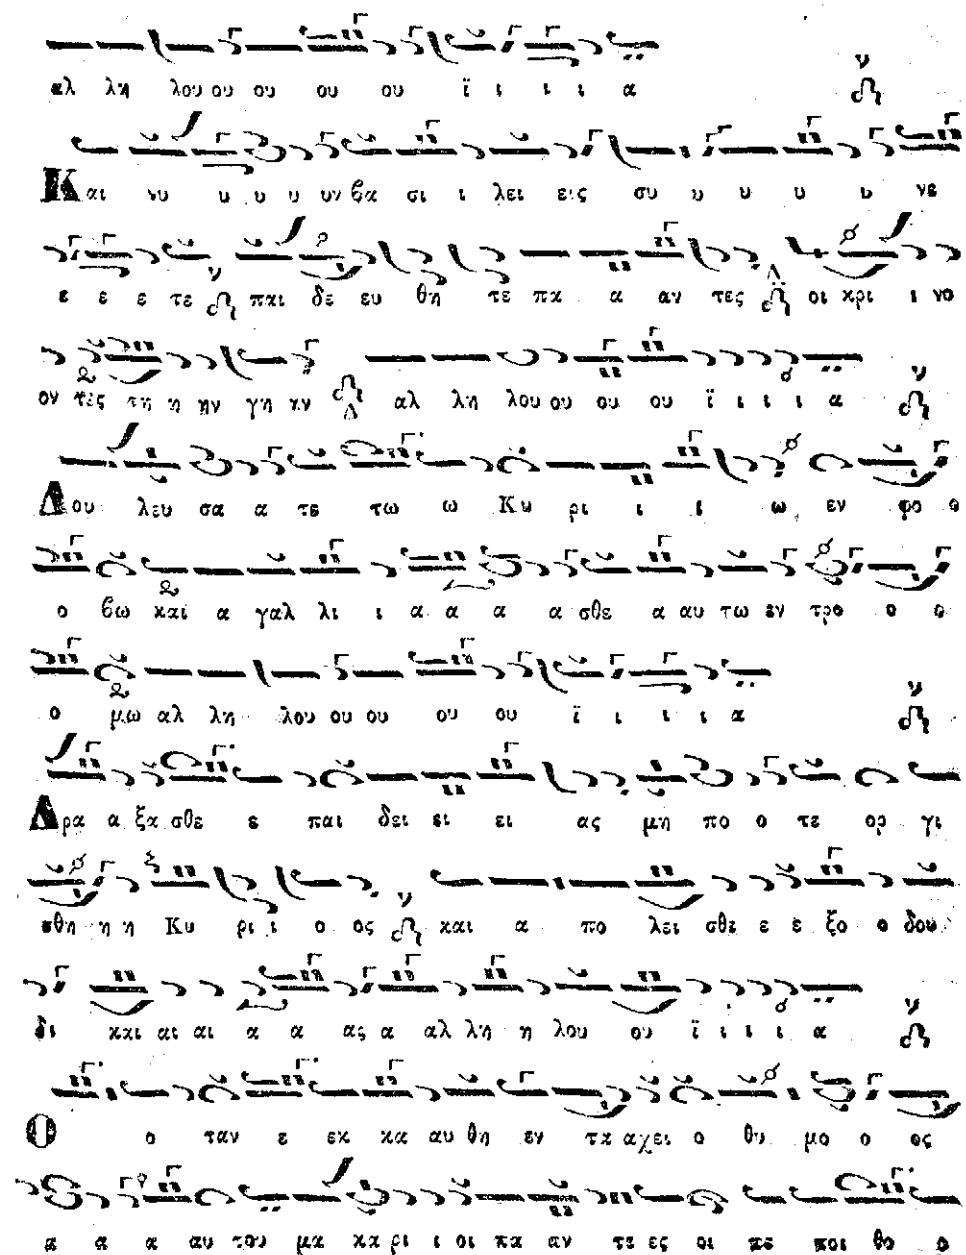 αλ λη λου ου ου ου ου ϊ ι ι ι α
Και νυ υ υ υ υν βα σι ι λει εις συ υ υ υ υ νε
ε ε ε τε παι δε ευ θη τε πα α αν τες οι κρι ι νο
ον τες τη η ην γη ην αλ λη λου ου ου ου ϊ ι ι ι α
Δου λευ σα α τε τω ω Κυ ρι ι ι ω εν φο ο
ο βω και α γαλ λι ι α α α α σθε α αυ τω εν τρο ο ο
ο μω αλ λη λου ου ου ου ου ϊ ι ι ι α
Δρα α ξα σθε ε παι δει ει ει ας μη πο ο τε ορ γι
σθη η η Κυ ρι ι ο ος και α πο λει σθε ε ε ξο ο δου
δι και αι αι α α ας α αλ λη η λου ου ϊ ι ι ι α
Ο ο ταν ε εκ κα αυ θη εν τα αχει ο θυ μο ο ος
α α α αυ του μα κα ρι ι οι πα αν τε ες οι πε ποι θο ο